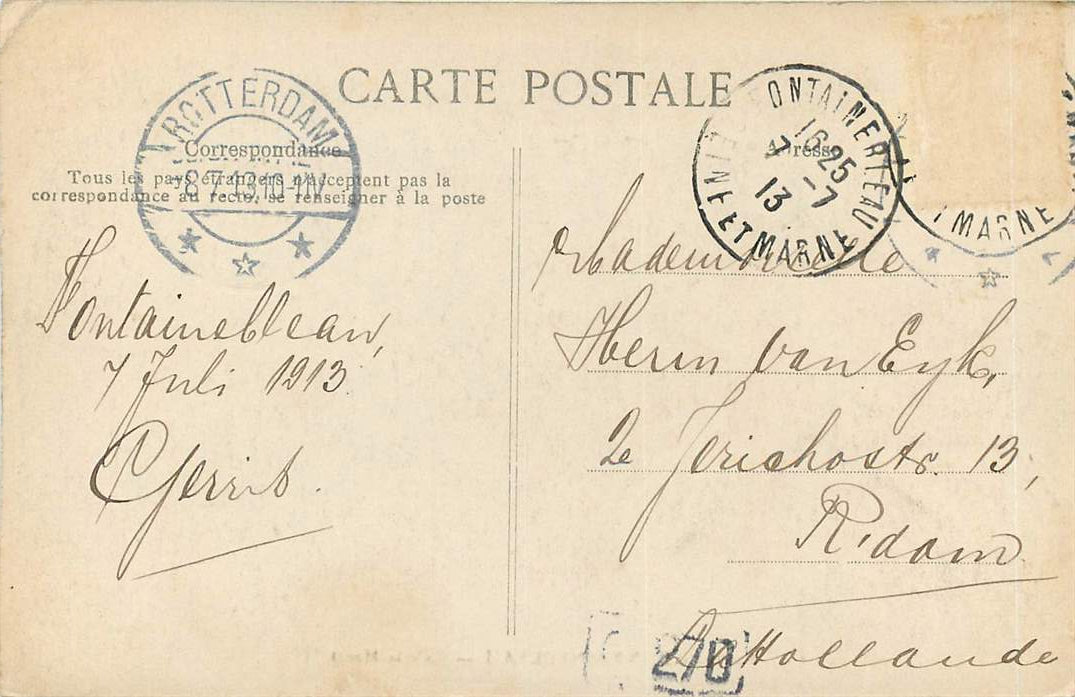 CARTE POSTALE
Correspondance
Tous les pays étrangers n'acceptent pas la
correspondance au recto, se renseigner à la poste
ROTTERDAM
8.7.13.10-11V
Fontainebleau,
7 Juli 1913
Gerrit.
Adresse
FONTAINEBLEAU
16 25
7 -7
13
SEINE ET MARNE
MARNE
Mademoiselle
Herm van Eyk,
2e Jerichostr. 13,
R.dam
Hollande
270